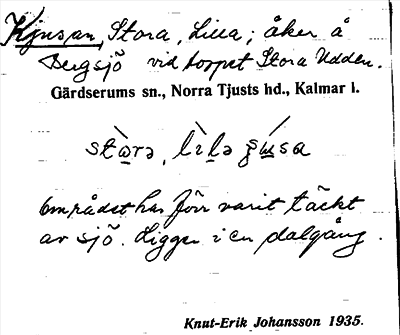 Kjusan, Stora, Lilla; åker å
Bergsjö vid torpet Stora Udden.
Gärdserums sn., Norra Tjusts hd., Kalmar l.
Området har förr varit täckt
av sjö. Ligger i en dalgång.
Knut-Erik Johansson 1935.